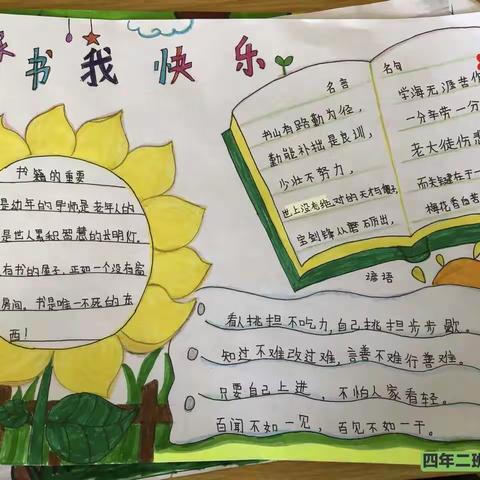 书我快乐
书籍的重要
是幼年的导师是老年人的
是世人累积智慧的长明灯.
有书的屋子,正如一个没有窗
房间,书是唯一不死的东
西!
名言
书山有路勤为径,
勤能补拙是良训,
少壮不努力,
世上没有绝对的天才与
宝剑锋从磨砺出,
名句
学海无涯苦作
一分辛劳一分
老大徒伤悲
而关键在于一
梅花香自苦
谚语
看人挑担不吃力,自己挑担步步歇。
知过不难改过难,言善不难行善难。
只要自己上进,不怕人家看轻。
百闻不如一见,百见不如一干。
四年二班